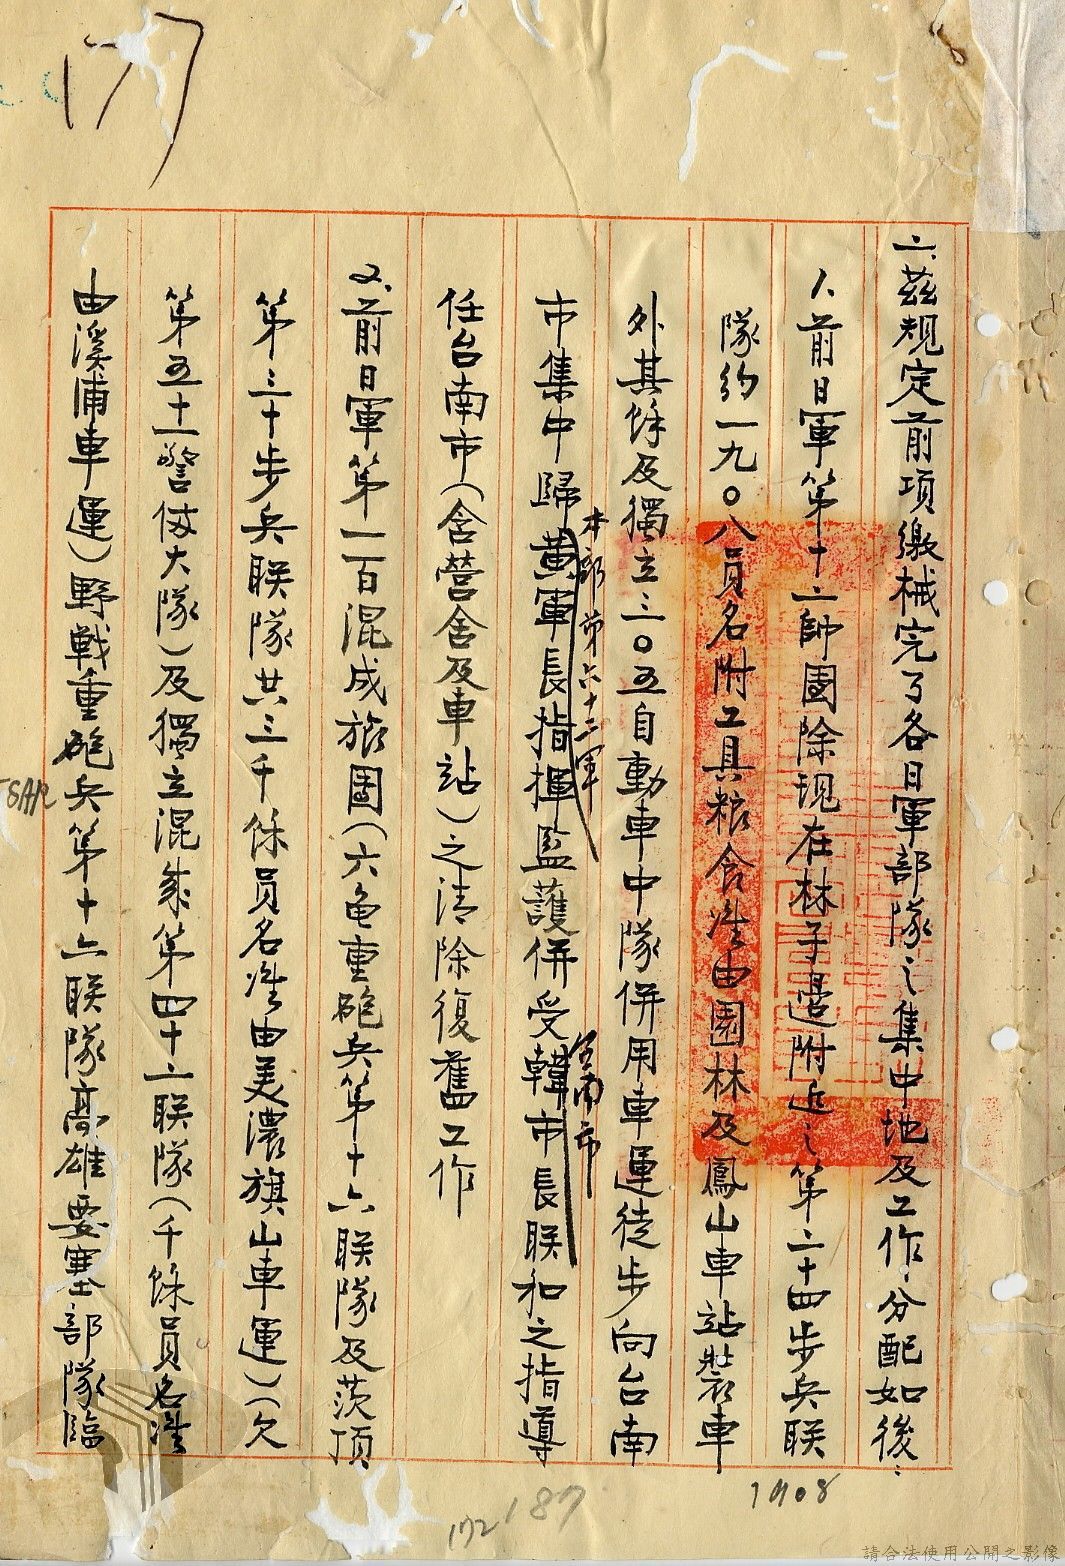 177
二、茲規定前項繳械完了各日軍部隊之集中地及工作分配如後：
1、前日軍第十二師團除現在林子邊附近之第二十四步兵联
隊約一九〇八員名附工具粮含准由園林及鳳山車站裝車
外其餘及獨立三〇五自動車中隊併用車運徒步向台南
本部第六十二軍
台南市
市集中歸黃軍長指揮監護併受韓市長联和之指導
任台南市(含營舍及車站)之清除復舊工作
2、前日軍第一百混成旅團(六龟重砲兵第十六联隊及茨頂
第三十步兵联隊共三千餘員名准由美濃旗山車運)(欠
第五十一警備大隊)及獨立混成第四十二联隊(千餘員名准
由溪浦車運)野戰重砲兵第十六联隊高雄要塞部隊臨
1908
187
172
請合法使用公開之影像